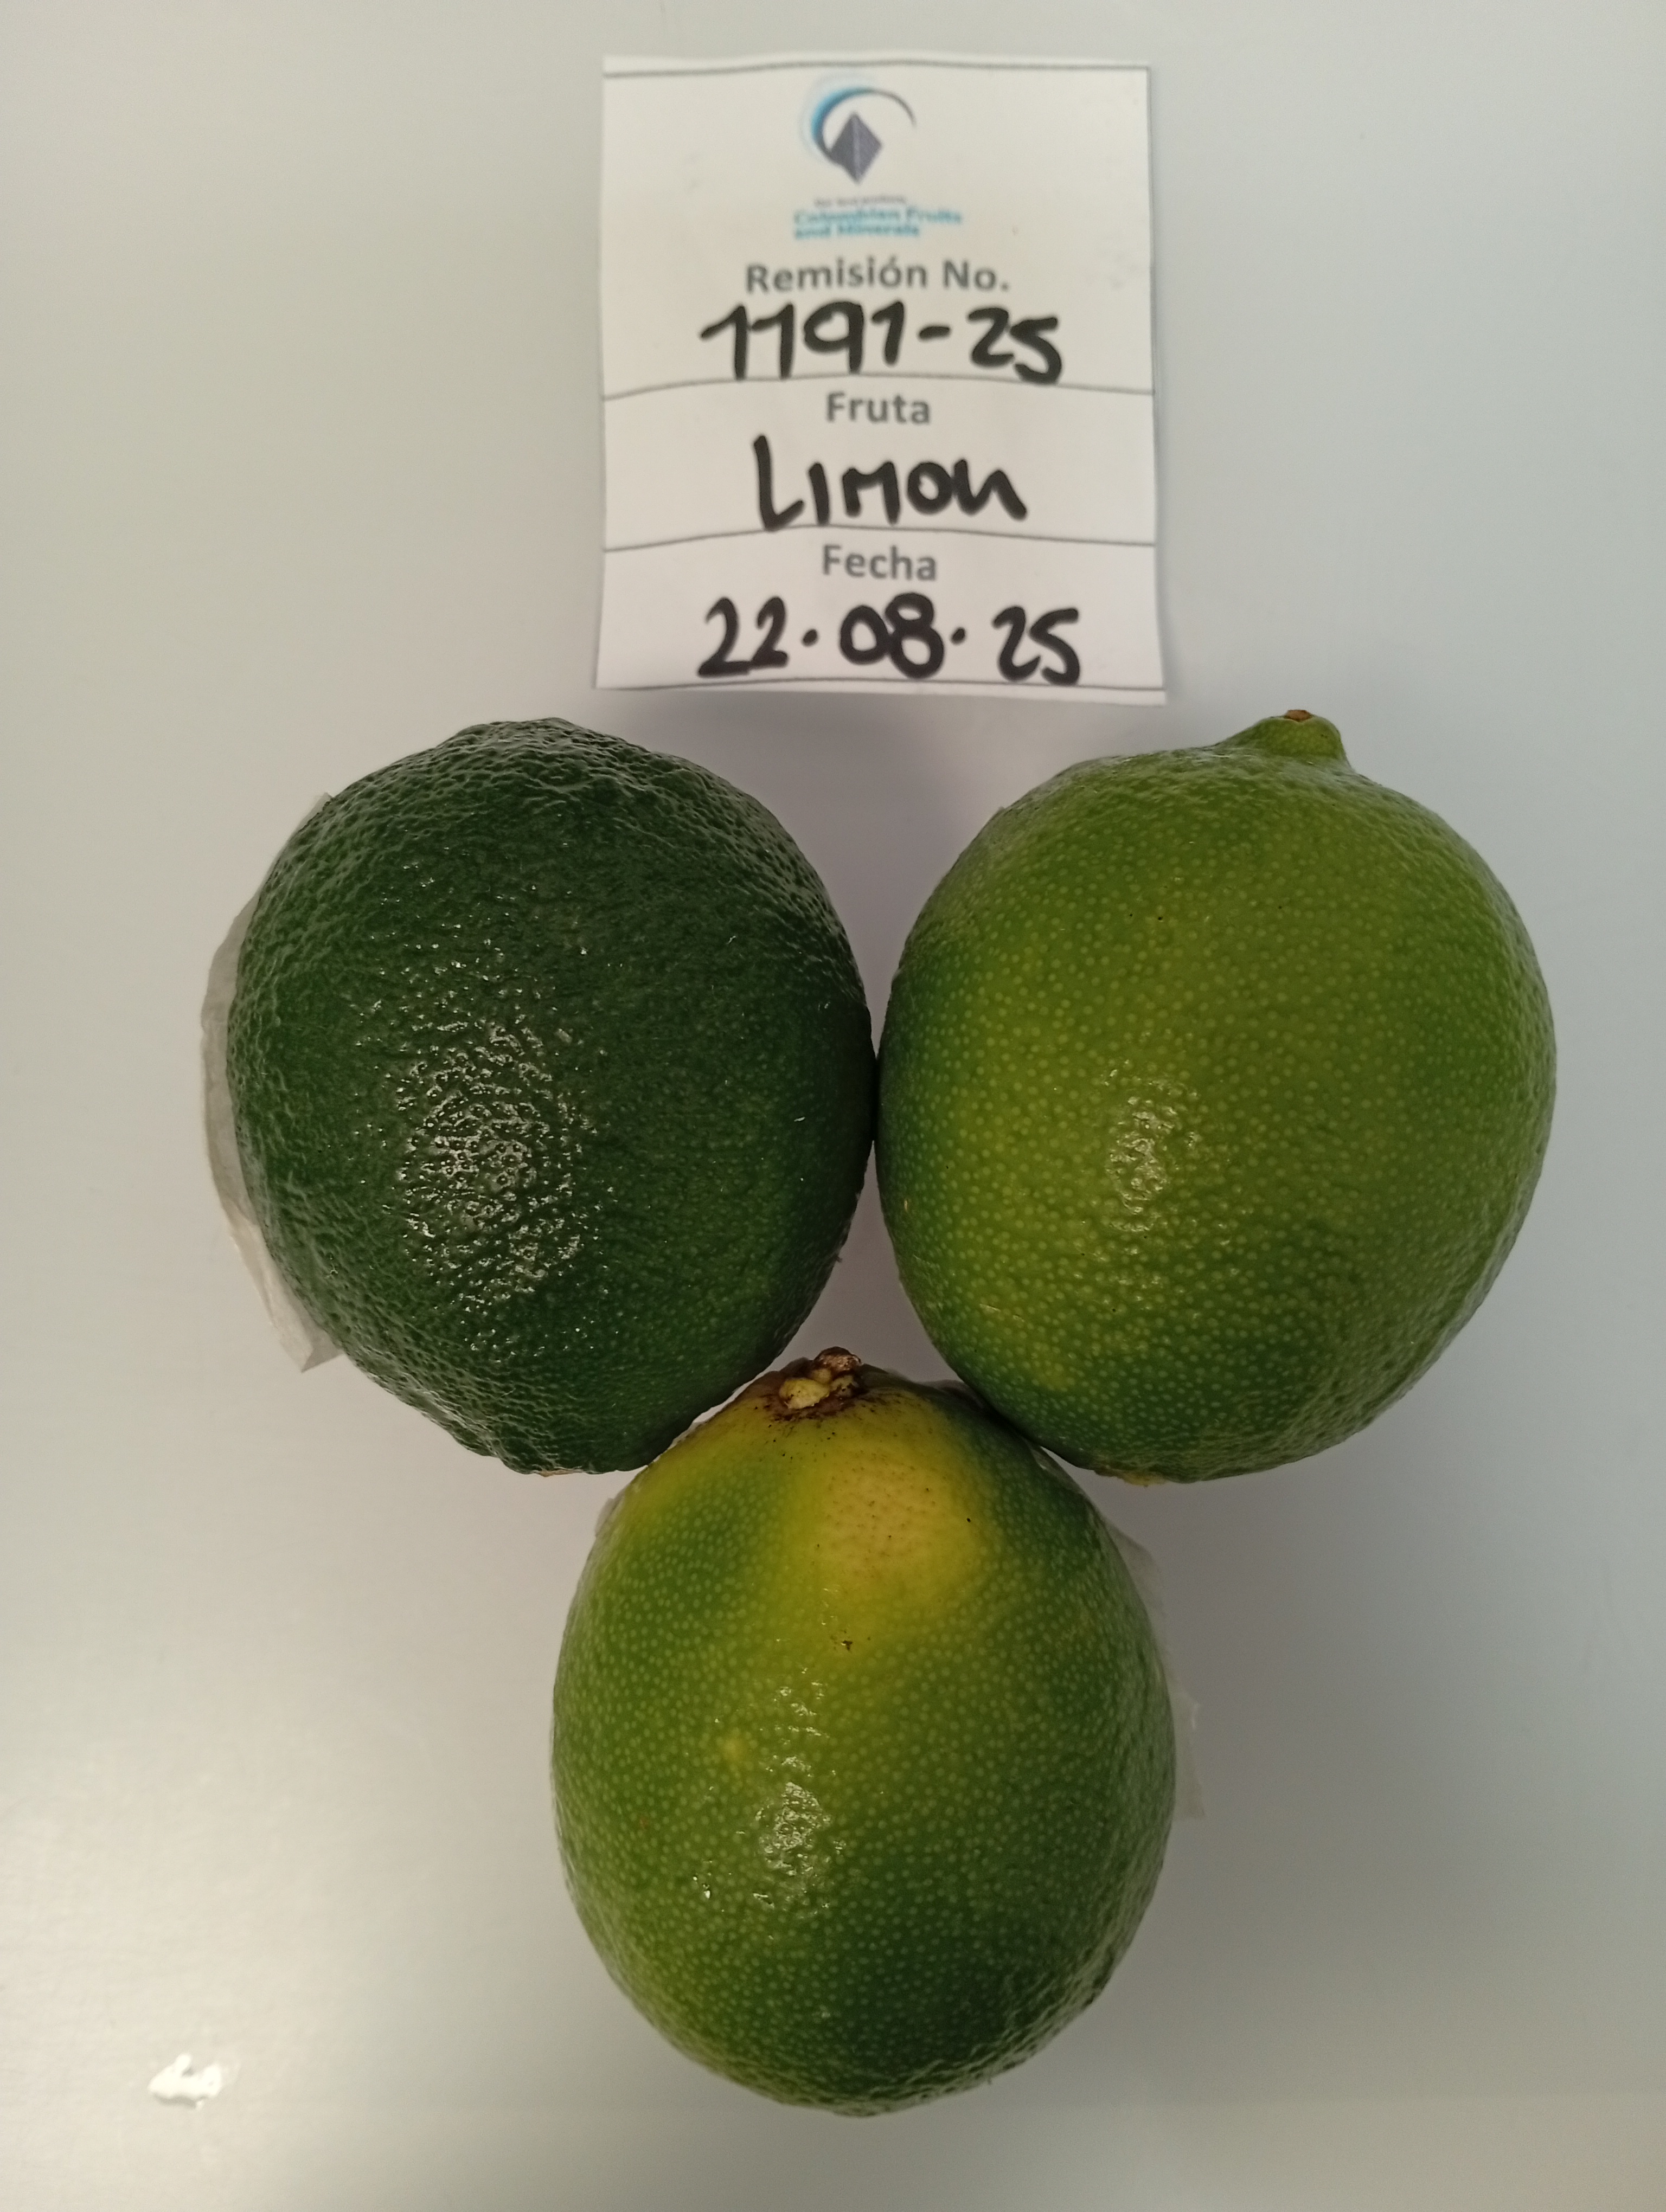 Colombian Fruits
and Minerals
Remisión No.
1191-25
Fruta
LIMON
Fecha
22.08.25